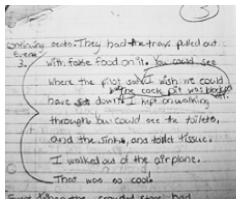 3
continuing seats. They had the trays pulled out
Event
3. with fake food on it. You could see
where the pilot I wish we could
but the cock pit was blocked
have down. I kept on walking off.
through. You could see the toilets,
and the sinks, and toilet tissue.
I walked out of the airplane.
That was so cool.